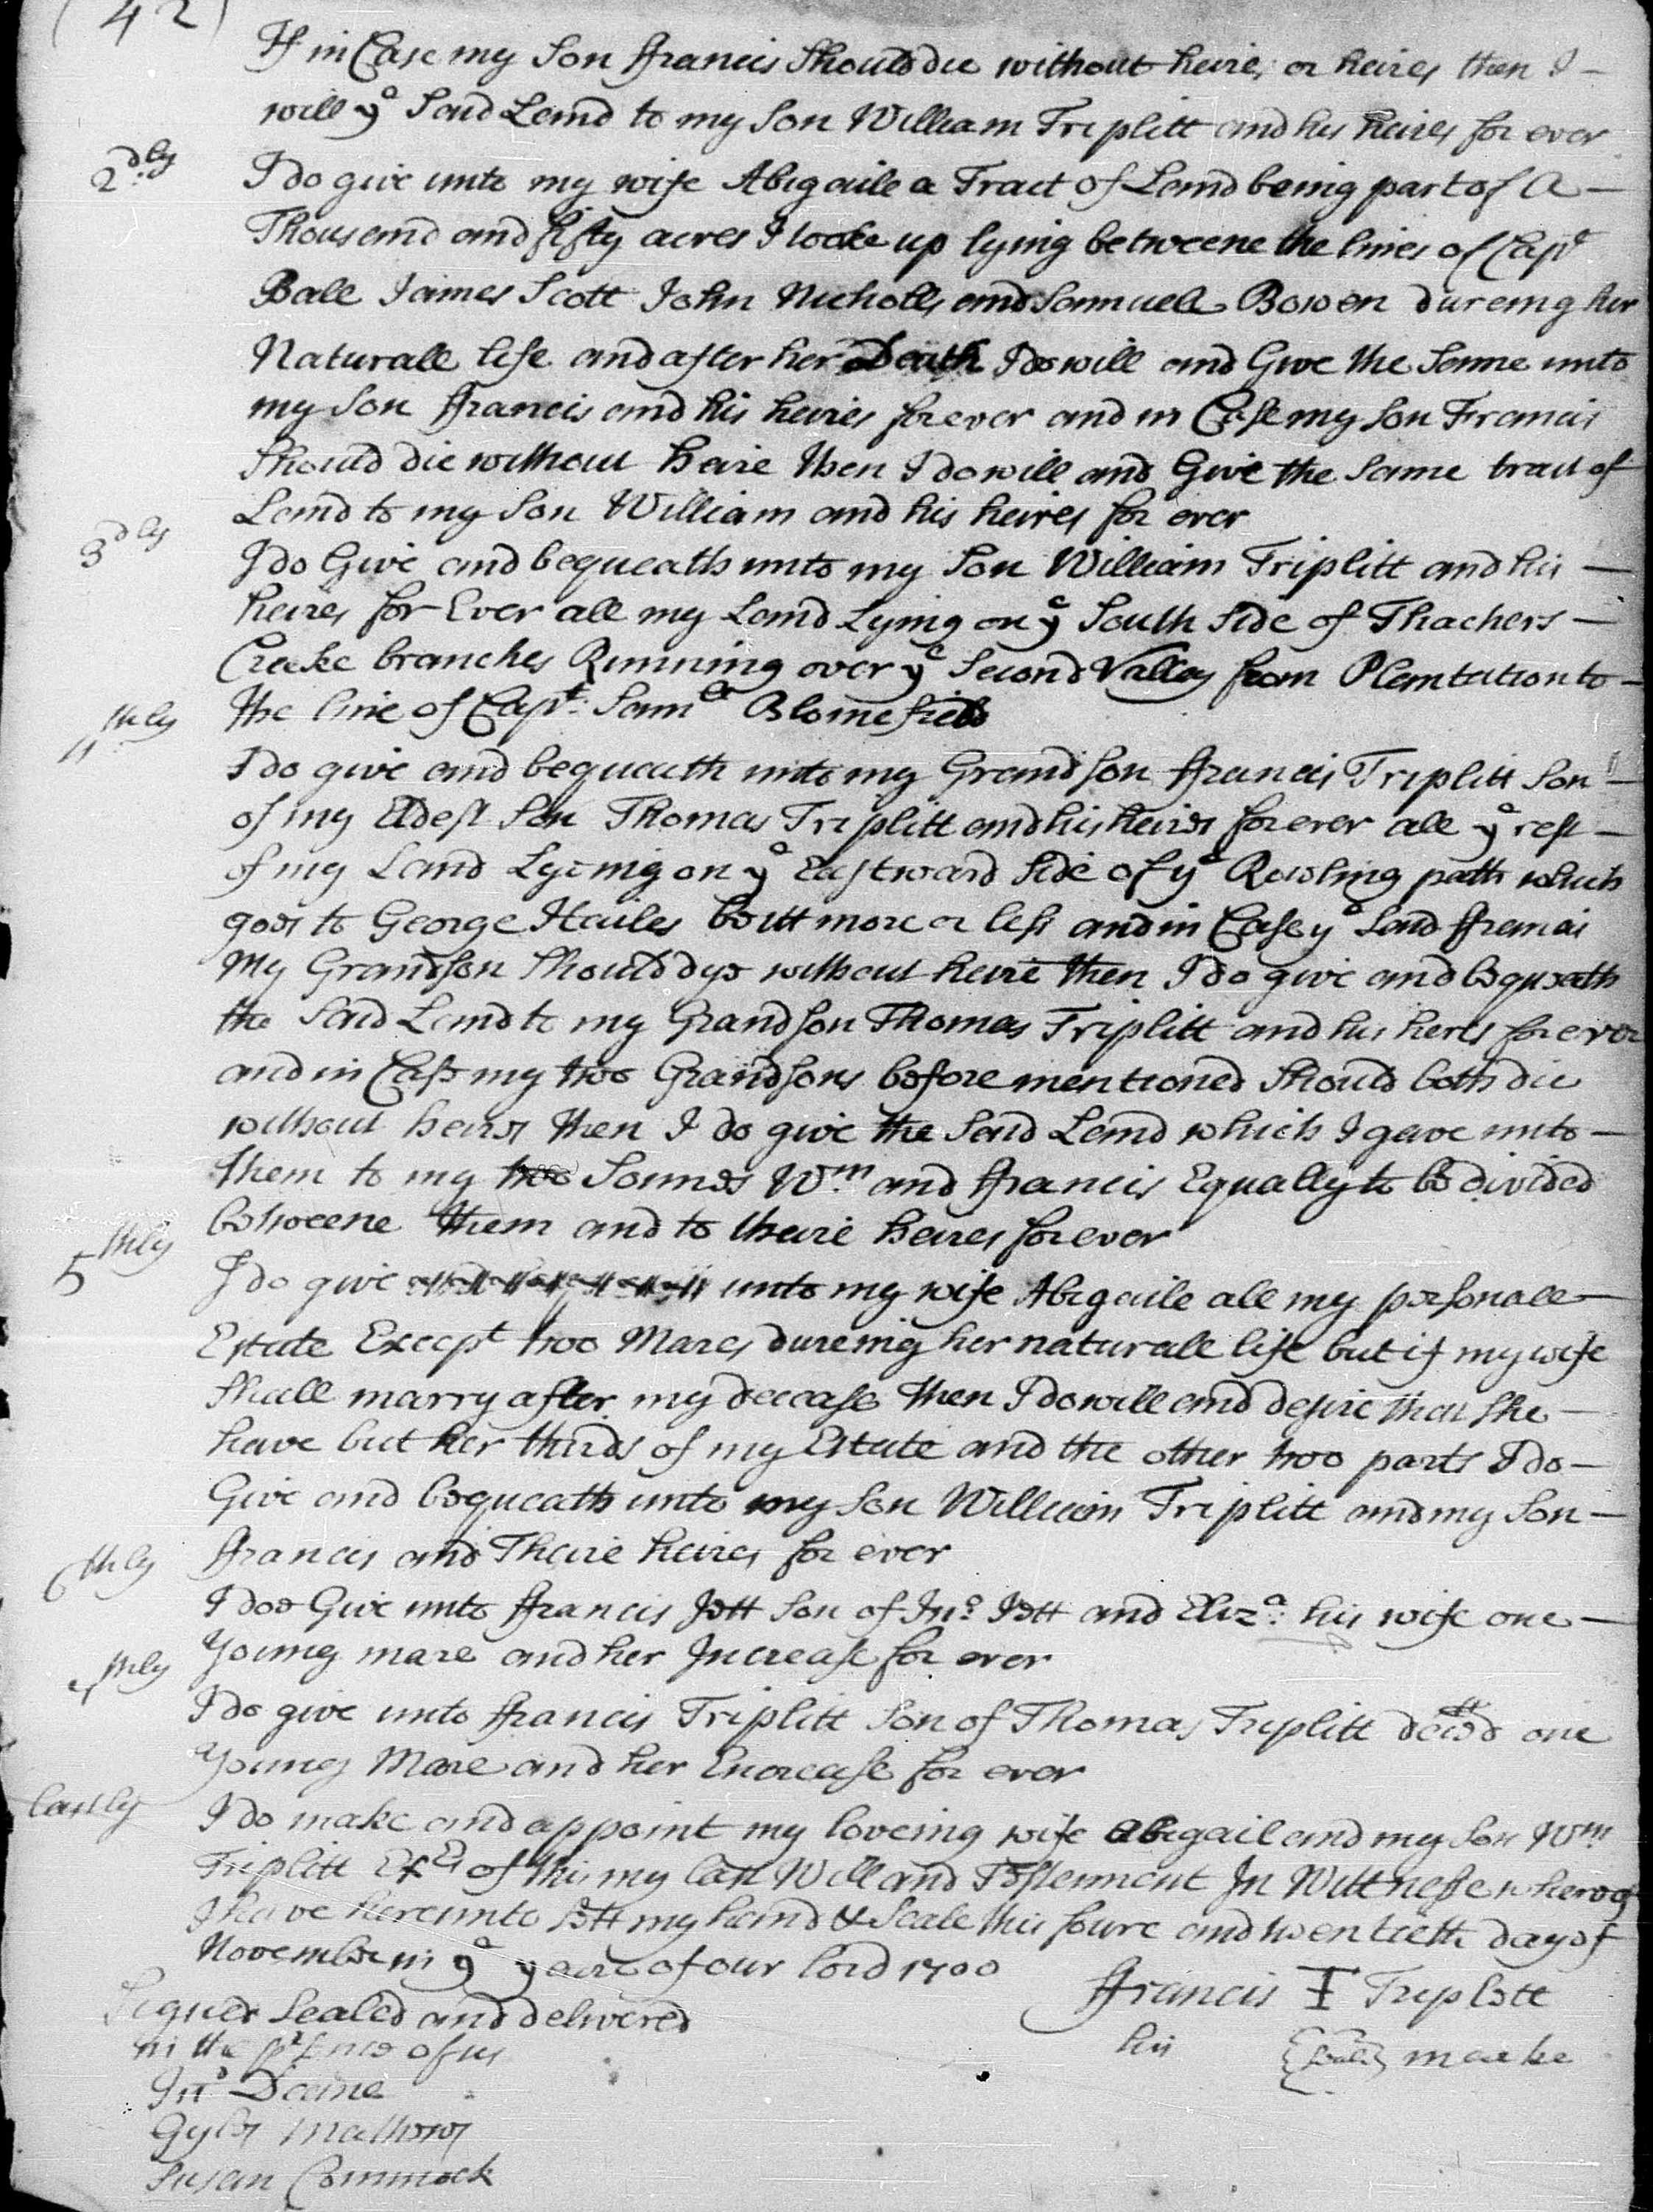 (42)
If in Case my Son ffrancis Should die without heire, or heires then I –
will ye Said Land to my Son William Triplitt and his heires for ever
2dly I do give unto my wife Abigaile a Tract of Land being part of A –
Thousand and fifty acres I tooke up lying betweene the lines of Capt
Ball James Scott John Nicholls and Samuell Bowen dureing her
Naturall life and after her Death I do will and Give the Same unto
my Son ffrancis and his heires for ever and in Case my Son Francis
Should die without heire then I do will and Give the Same tract of
Land to my Son William and his heires for ever
3dly I do Give and bequeath unto my Son William Triplitt and his –
heires for Ever all my Land Lying on ye South Side of Thachers –
Creeke branches Running over ye Second Valley from Plantation to –
the line of Capt: Samll Blomefield
4thly I do give and bequeath unto my Grandson ffrancis Triplitt Son –
of my Eldest Son Thomas Triplitt and his heires for ever all ye rest –
of my Land Lyeing on ye Eastward Side of ye Rowling path which
goes to George Hailes be itt more or less and in Case ye Said ffrancis
My Grandson Should dye without heire then I do give and bequeath
the Said Land to my Grandson Thomas Triplitt and his heirs for ever
and in Case my two Grandsons before mentioned Should both die
without heirs then I do give the Said Land which I gave unto –
them to my two Sonnes Wm. and ffrancis Equally to be divided
betweene them and to theire heires for ever
5thly I do give unto my wife Abigaile all my personall –
Estate Except two Mares dureing her naturall life but if my wife
Shall marry after my decease then I do will and desire that She –
have but her thirds of my Estate and the other two parts I do –
Give and bequeath unto my Son William Triplitt and my Son –
ffrancis and Theire heires for ever
6thly I doe Give unto ffrancis Jett Son of Jno. Jett and Eliza: his wife one –
Young mare and her Increase for ever
7thly I do give unto ffrancis Triplitt Son of Thomas Triplitt one
Young Mare and her Encrease for ever
Lastly I do make and appoint my loveing wife Abigail and my Son Wm
Triplitt Exrs of this my last Will and Testement In Wittnesse whereof
I have hereunto Sett my hand & Seale this foure and twentieth day of
November in ye yeare of our lord 1700
ffrancis T Triplett
his {Seale} marke
Signed Sealed and delivered
in the prsence of us
Jno Deane
Gyles Mathews
Susan Commock